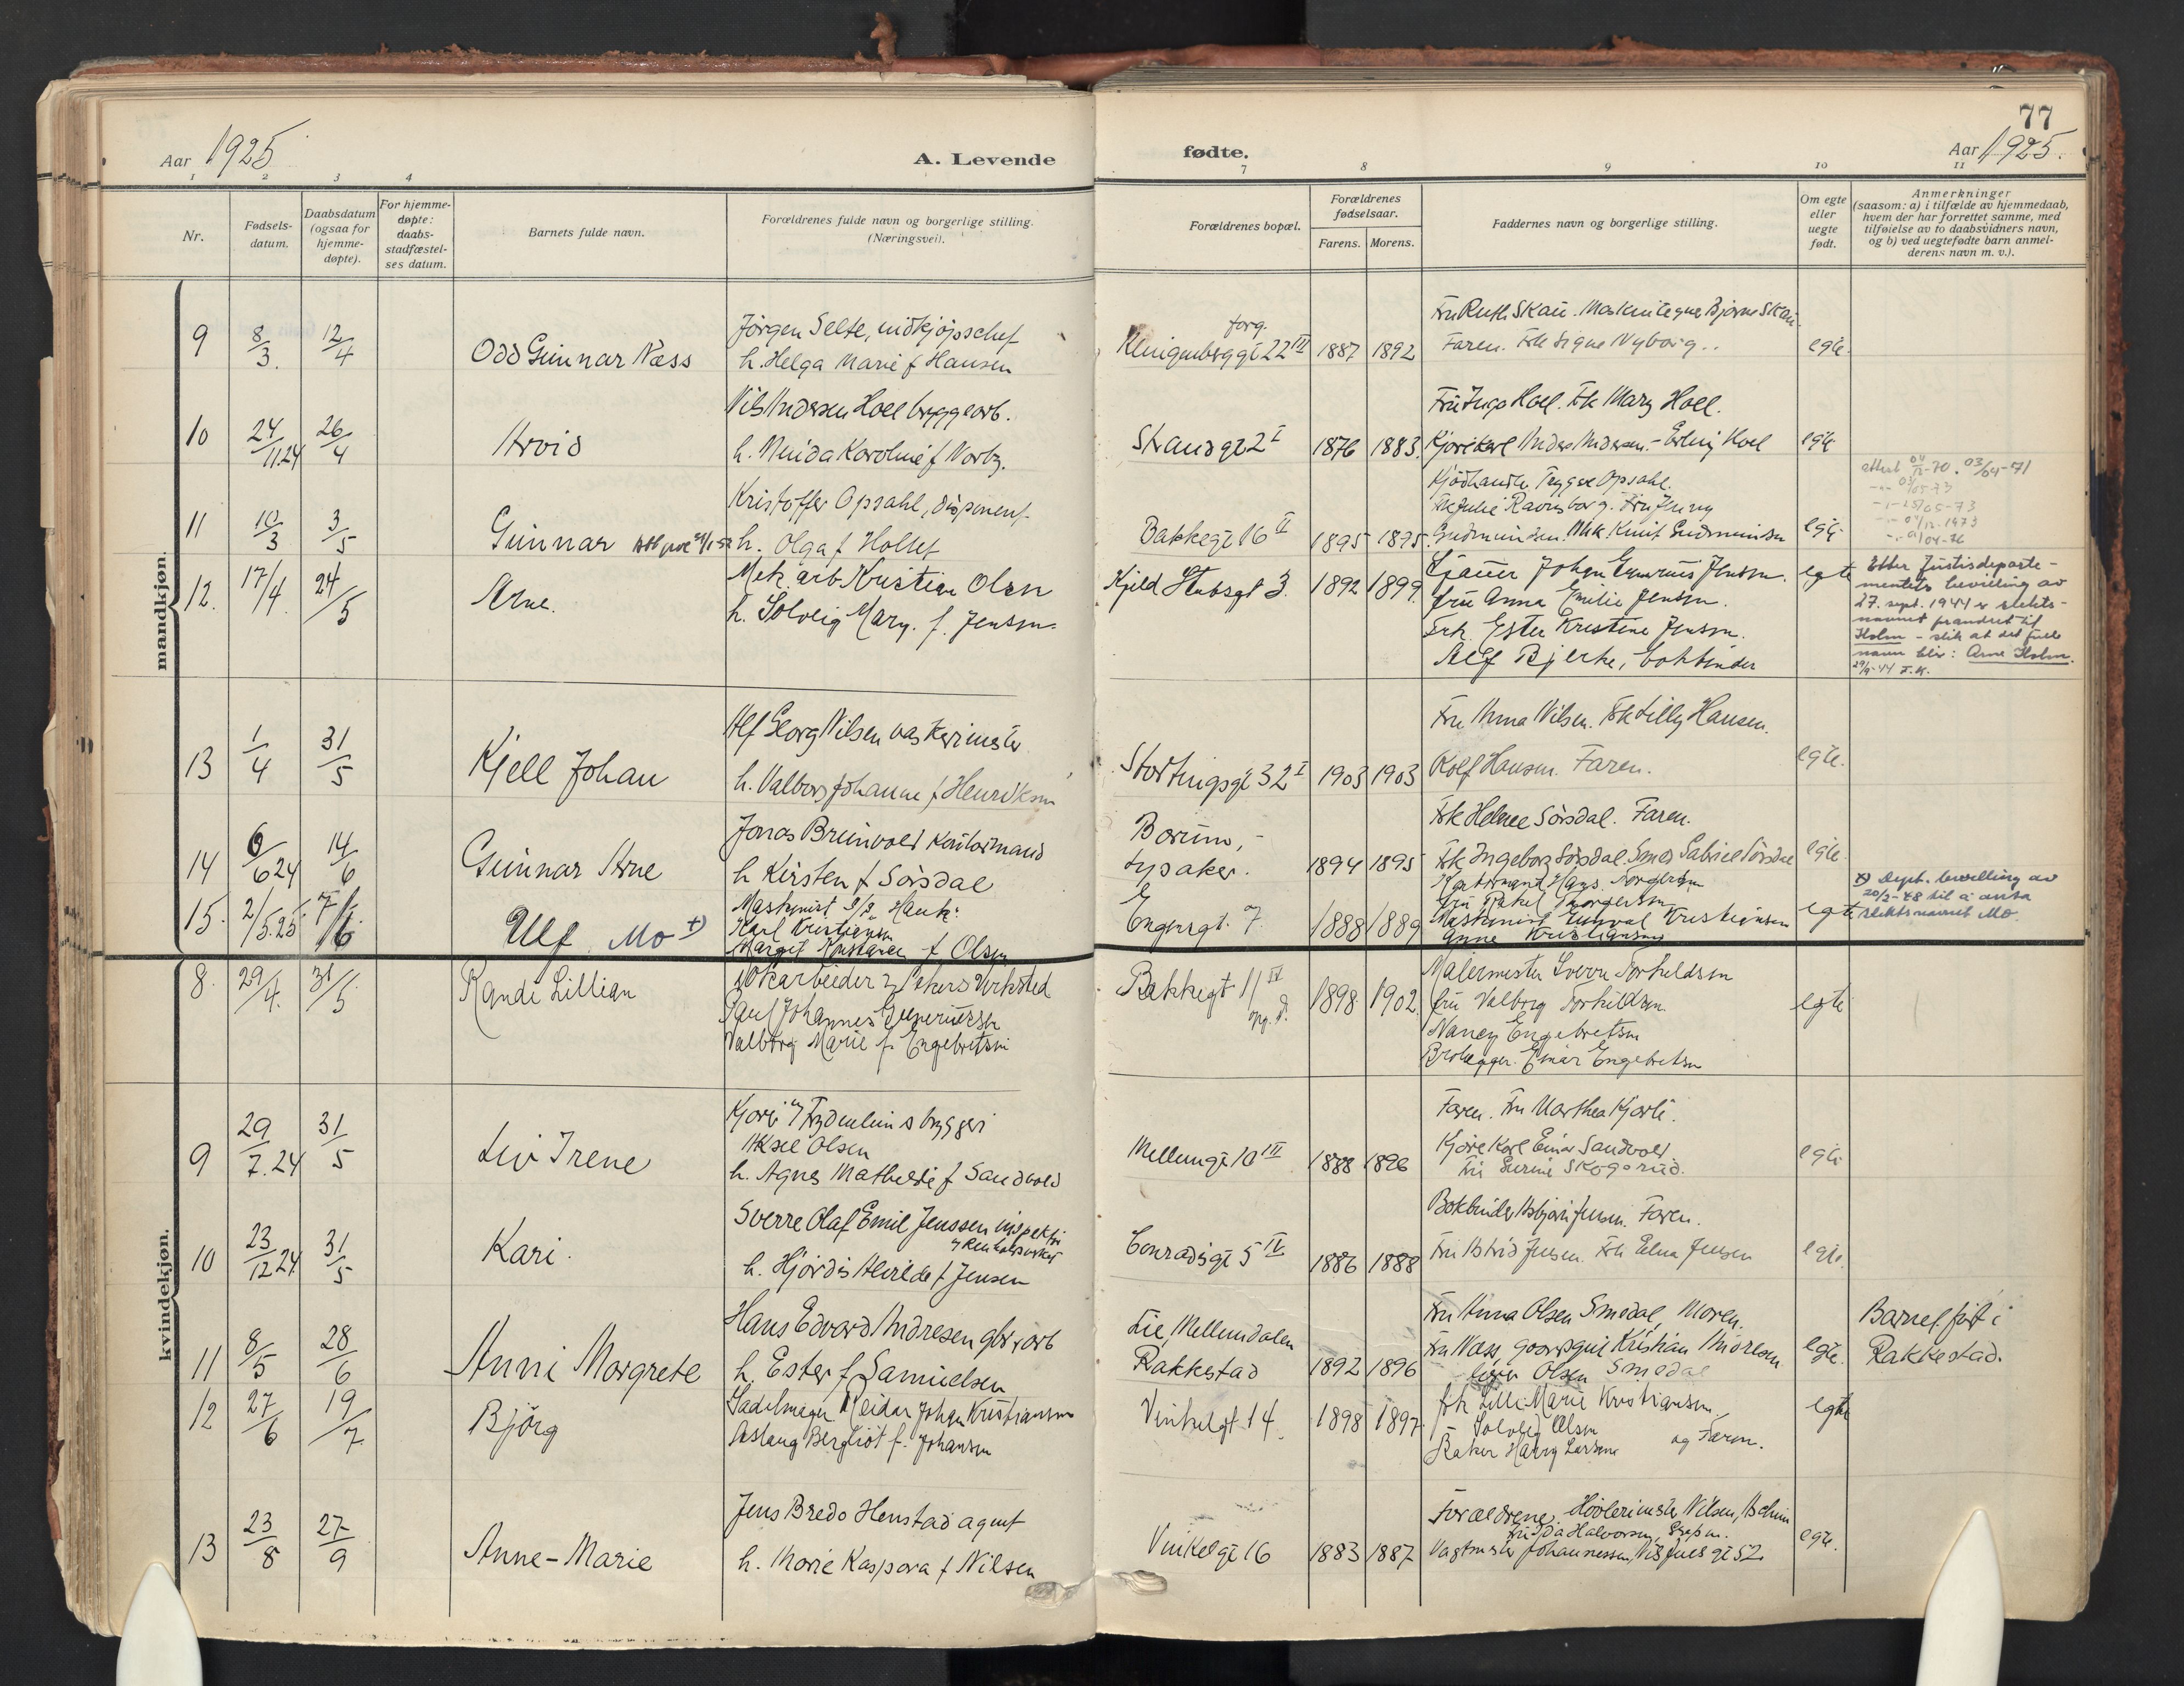 Aar 1925
A. Levende
fødte.
77
Aar 1925.
1 2 3 4
7 8 9 10 11
Nr.
Fødsels-
datum.
Daabsdatum
(ogsaa for
hjemme-
døpte).
For hjemme-
døpte:
daabs-
stadfæstel-
ses datum.
Barnets fulde navn.
Forældrenes fulde navn og borgerlige stilling.
(Næringsvei).
Forældrenes bopæl.
Forældrenes
fødselsaar.
Farens. Morens.
Faddernes navn og borgerlige stilling.
Om egte
eller
uegte
født.
Anmerkninger
(saasom: a) i tilfælde av hjemmedaab,
hvem der har forrettet samme, med
tilføielse av to daabsvidners navn,
og b) ved uegtefødte barn anmel-
derens navn m. v.).
mandkjøn.
9 8/3. 12/4 Odd Gunnar Næss
Jörgen Selte, indkjøpschef
h. Helga Marie f Hansen
Klingenberggt 22 III 1887 1892
Fru Ruth Skau. Bjarne Skau.
Faren. Frk Signe Nyborg..
egte.
10 24/11.24 26/4 Arvid
Nils Andersen Hoel bryggearb.
h. Karoline f Norby.
Strandgt 2 I 1876 1883.
Fru Inga Hoel. Frk Mary Hoel.
Kjørekarl Anders Andersen. - Erling Hoel
egte
11 10/3 3/5 Gunnar
Kristoffer Opsahl, disponent
h. Olga f Holter
Bakkegt 16 II 1895 1895.
Kjødhandler Trygve Opsahl.
Frk Julie Ravnsborg. Fru Jenny
Gudmundsen. Knut Gudmundsen
egte
attest 04/12-70. 03/04-71
03/05-73
25/05-73
04/12-1973
01/04-76
12. 17/4. 24/5 Arne.
Mek. arb Kristian Olsen
h. Solveig Marg. f. Jensen.
Kjeld Stubsgt 3. 1892 1899.
Johan Jensen.
fru Anna Emilie Jensen.
Frk. Ester Kristine Jensen.
Alf Bjerke, bokbinder
egte
Etter Justisdeparte-
mentets bevilling av
27. sept. 1944 er slekts-
navnet forandret til
Holm - slik at det fulle
navn blir: Arne Holm.
29/9-44 F.K.
13 1/4 31/5 Kjell Johan
Alf Georg Nilsen vaskerimester
h. Valborg Johanne f Henriksen
Stortingsgt 32 I 1903 1903
Fru Anna Nilsen. Frk Lilly Hansen.
Rolf Hansen. Faren.
egte.
14 6/6 24 14/6 Gunnar Arne
Jonas Brunvold kontormand
h Kirsten f Sörsdal
Bærum,
Lysaker. 1894 1895
Frk Helene Sörsdal. Faren.
Frk Ingeborg Sörsdal. Smed Gabriel Sörsdal
egte.
15. 2/5.25. 7/6. Ulf Mo x)
Maskinist S/S Hauk:
Karl Kristiansen
Margit Kristiansen f. Olsen
Engensgt. 7. 1888 1889
Kontormand Hans Torgersen
fru Torgersen
Maskinist Kristiansen
Anna Kristiansen
egte
x) Dept. bevilling av
20/2-48 til å anta
slektsnavnet Mo.
kvindekjøn.
8. 29/4. 31/5. Randi Lillian
Akers Verksted
Paul Johannes
Valborg Marie f. Engebretsen
Bakkegt 11 IV opg. 1898 1902
Malermester Sverre Torkildsen
fru Valborg Torkildsen.
Nancy Engebretsen
Brolegger. Einar Engebretsen
egte
9 29/7.24 31/5 Liv Irene
Frydenlunds bryggeri
Aksel Olsen
h. Agnes Mathilde f Sandvold
Mellemgt 10 III 1888 1896
Faren. Fru Marthea Kjørli.
Kjørekarl Einar Sandvold
Fru Skogsrud.
egte
10 23/12 24 31/5 Kari.
Sverre Olaf Emil Jenssen inspektör
h. Hjördis Alvilde f Jensen
Conradisgt 5 IV. 1886 1888
Bokbinder Asbjörn Jensen. Faren.
Fru Astrid Jensen. Frk Edna Jensen
egte.
11 8/5 28/6 Anni Margrete
Hans Edvard Andresen gbr. arb
h. Ester f Samuelsen
Lie, Mellemdalen
Rakkestad 1892 1896
Fru Anna Olsen Smedal, Moren.
Fru Næss, Kristian Andersen
Olsen Smedal
egte.
Barnet født i
Rakkestad.
12 27/6 19/7 Björg
Sadelmager Reidar Johan Kristiansen
Aslaug Bergliot f. Johansen
Vinkelgt. 14. 1898 1897.
frk Lilli Marie Kristiansen
- Solveig Olsen
Baker Harry Larsen og Faren.
egte
13 23/8 27/9 Anne-Marie
Jens Bredo Henstad agent
h. Marie Kaspara f Nilsen
Vinkelgt 16 1883 1887
Forældrene. Nilsen, Aschim
Fru Ida Halvorsen,
Vagtmester Johannessen, Nils Juels gt 52.
egte.